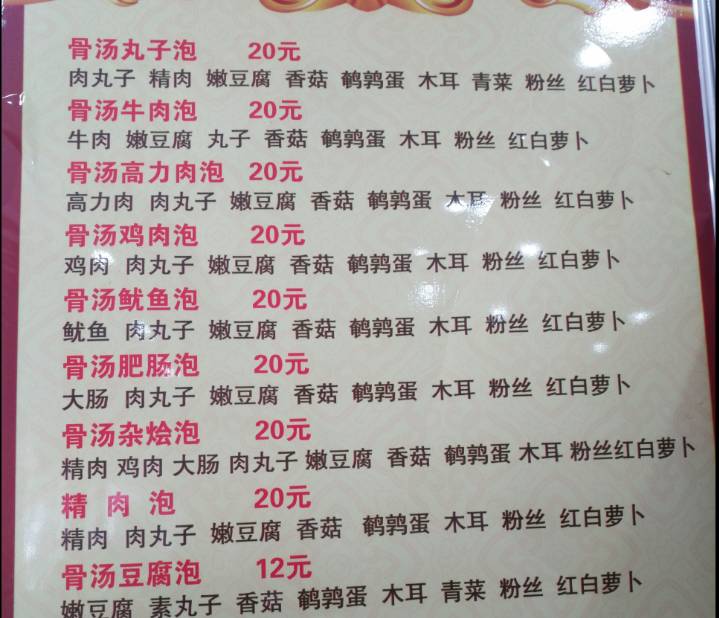 骨汤丸子泡 20元
肉丸子 精肉 嫩豆腐 香菇 鹌鹑蛋 木耳 青菜 粉丝 红白萝卜
骨汤牛肉泡 20元
牛肉 嫩豆腐 丸子 香菇 鹌鹑蛋 木耳 粉丝 红白萝卜
骨汤高力肉泡 20元
高力肉 肉丸子 嫩豆腐 香菇 鹌鹑蛋 木耳 粉丝 红白萝卜
骨汤鸡肉泡 20元
鸡肉 肉丸子 嫩豆腐 香菇 鹌鹑蛋 木耳 粉丝 红白萝卜
骨汤鱿鱼泡 20元
鱿鱼 肉丸子 嫩豆腐 香菇 鹌鹑蛋 木耳 粉丝 红白萝卜
骨汤肥肠泡 20元
大肠 肉丸子 嫩豆腐 香菇 鹌鹑蛋 木耳 粉丝 红白萝卜
骨汤杂烩泡 20元
精肉 鸡肉 大肠 肉丸子 嫩豆腐 香菇 鹌鹑蛋 木耳 粉丝红白萝卜
精肉泡 20元
精肉 肉丸子 嫩豆腐 香菇 鹌鹑蛋 木耳 粉丝 红白萝卜
骨汤豆腐泡 12元
嫩豆腐 素丸子 香菇 鹌鹑蛋 木耳 青菜 粉丝 红白萝卜